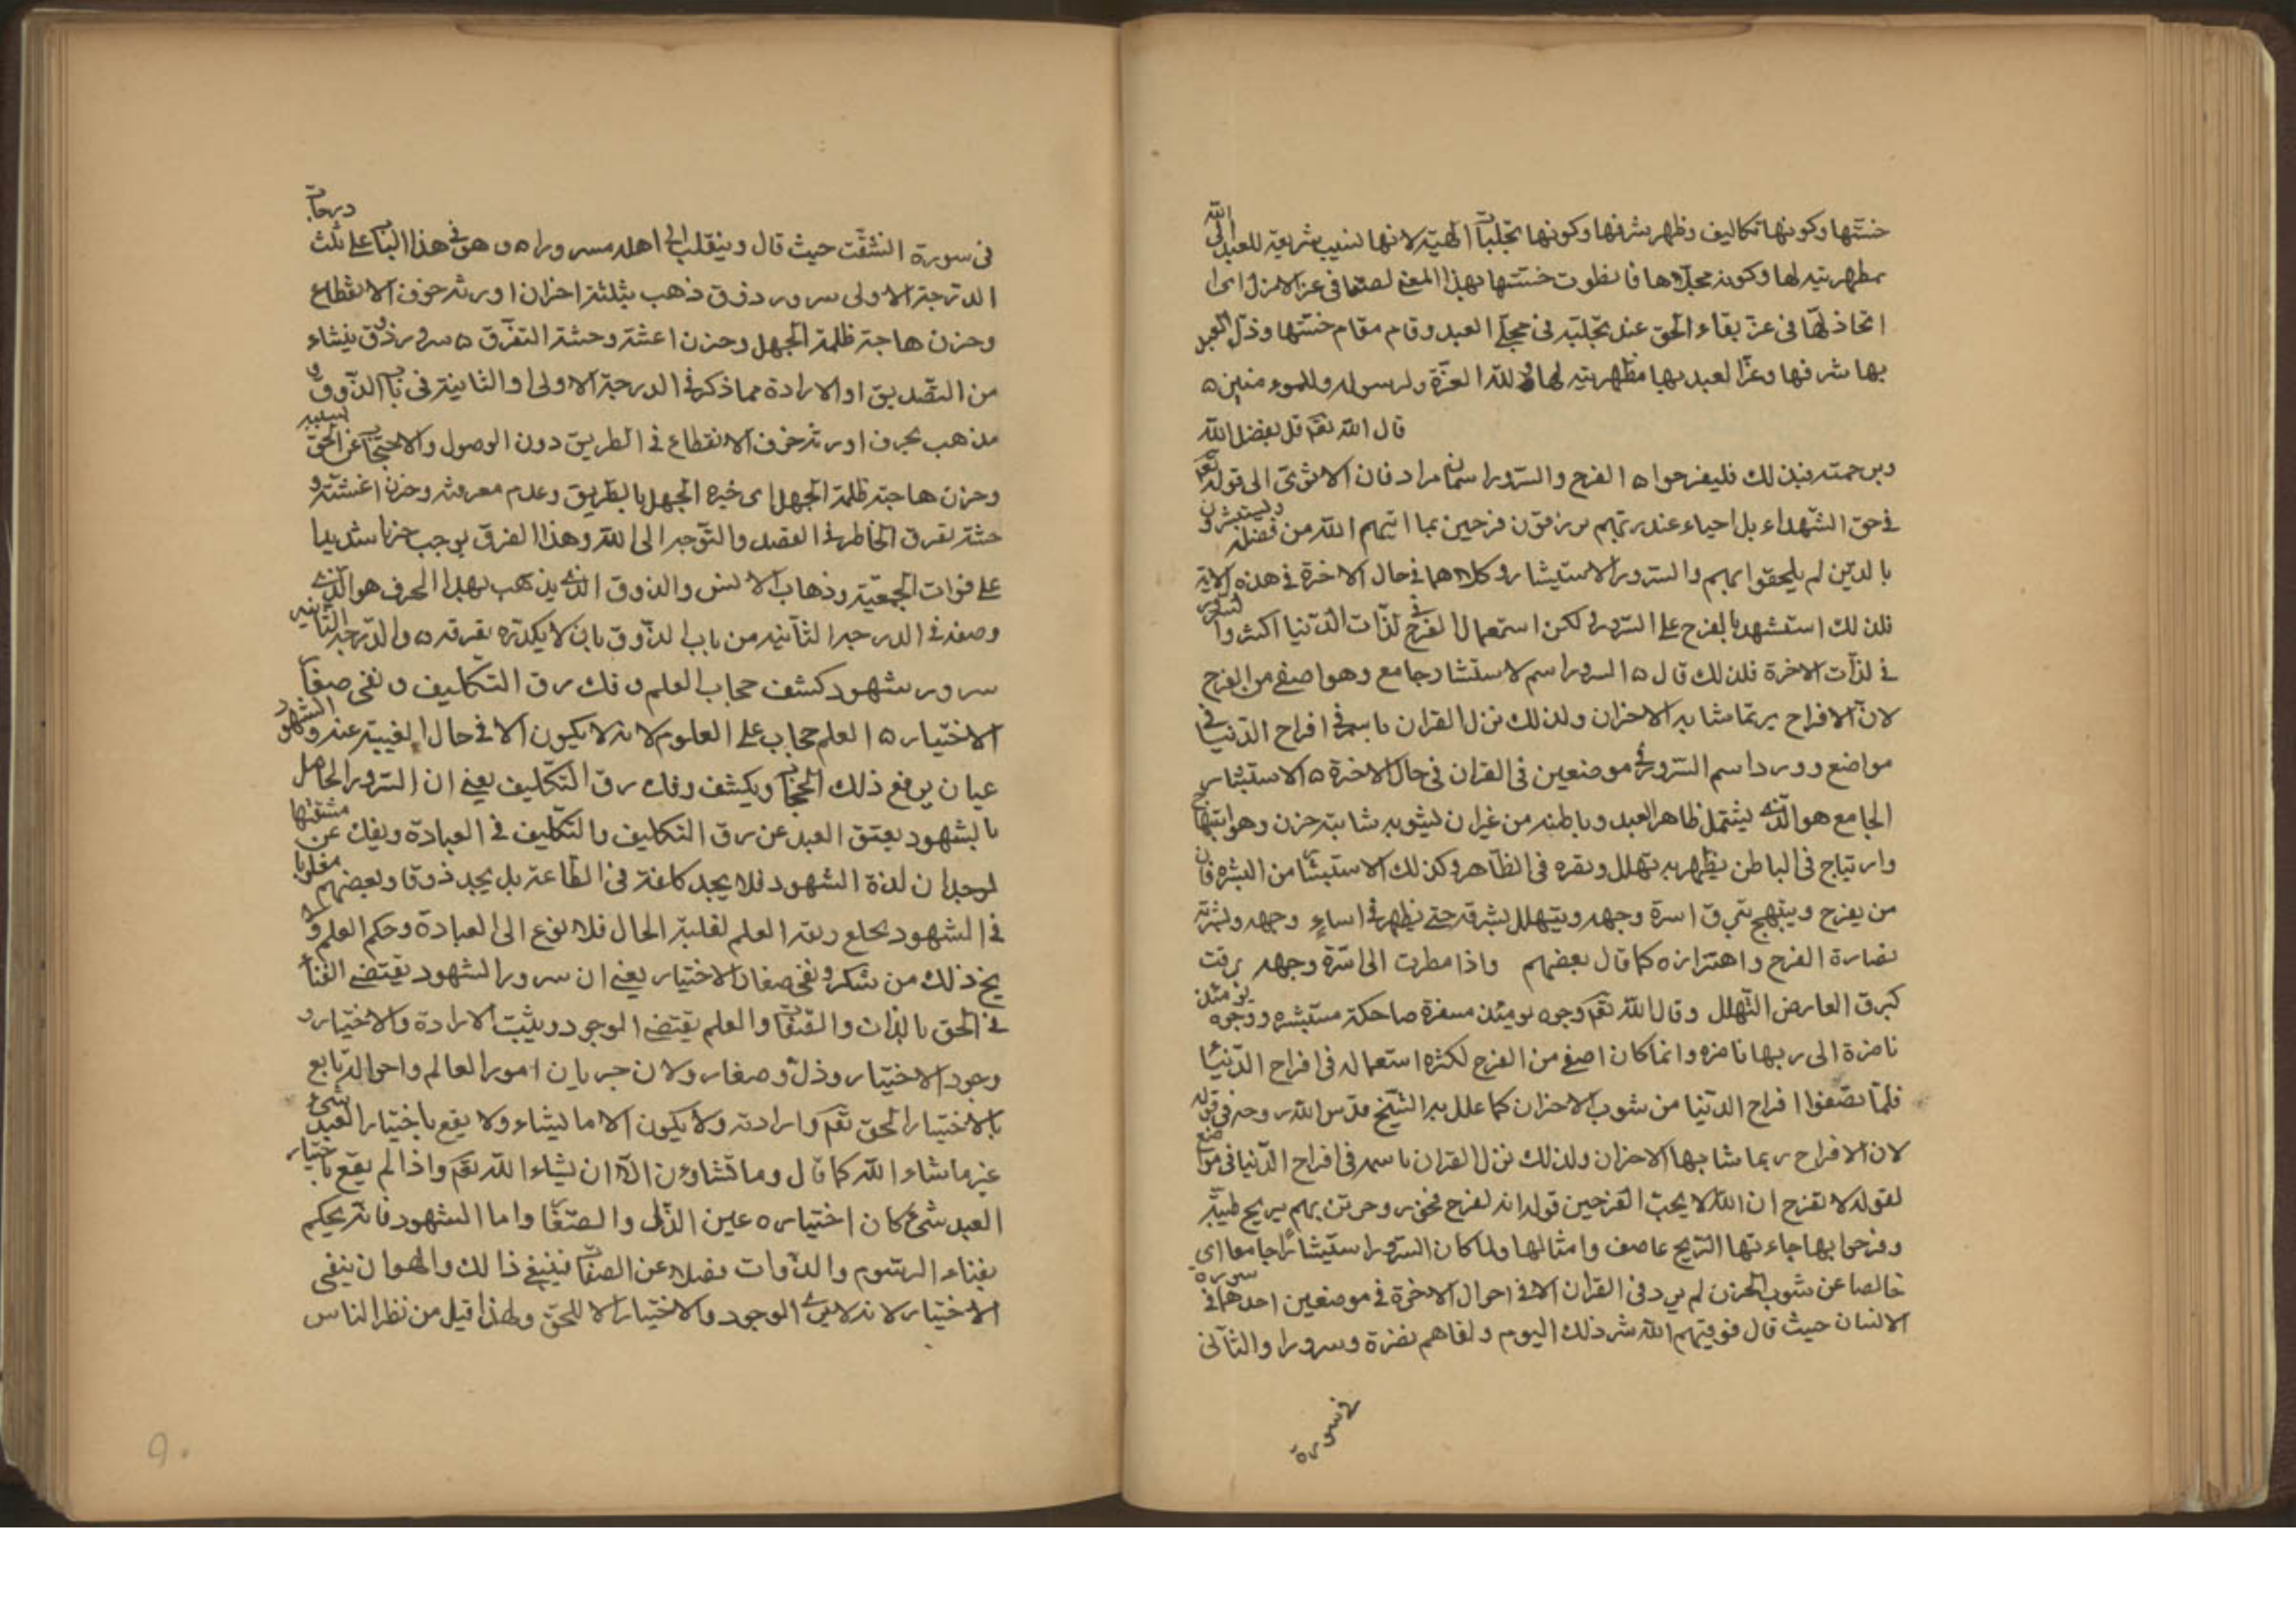 خستها وكونها تكاليف وظهر شرفها وكونها تجليا الهية لانها لنسب شريعة للعبد الى الله
بمظهريته لها وكونه مجلاها فانطوت خستها بهذا المعنى لصفا فى عز الازل اى
اتحاد لها فى عز بقاء الحق عند تجليه فى مجلى العبد وقام مقام خستها وذل العبد
بها شرفها وعز العبد بها مظهريته لها ولله العزة ولرسوله وللمومنين ۵
قال الله تعم قل بفضل الله
وبرحمته فبذلك فليفرحوا ۵ الفرح والسرور اسمان مراد فان الا ترى الى قوله تعم
فى حق الشهداء بل احياء عند ربهم يرزقون فرحين بما اتيهم الله من فضله ويستبشرون
بالذين لم يلحقوا بهم والسرور الاستبشار وكلاهما فى حال الاخرة فى هذه الاية
فلذلك استشهد بالفرح على السرور لكن استعمال الفرح فى لذات الدنيا اكثر والسرور
فى لذات الاخرة فلذلك قال ۵ السرور اسم لاستبشار جامع وهو اصفى من الفرح
لان الافراح ربما شابه الاحزان ولذلك نزل القران باسمه فى افراح الدنيا فى
مواضع وورد اسم السرور فى موضعين فى القران فى حال الاخرة ۵ الاستبشار
الجامع هو الذى يشتمل ظاهر العبد وباطنه من غير ان يشوبه شائبة حزن وهو ابتهاج
وارتياح فى الباطن يظهر به تهلل ونقره فى الظاهر وكذلك الاستبشار من البشره فان
من يفرح ويبتهج تبرق اسرة وجهه ويتهلل بشرته حتى يظهر فى اساء وجهه وبشرته
نضارة الفرح واهتزازه كما قال بعضهم واذا مطرت الى اسرة وجهه برقت
كبرق العارض المتهلل وقال الله تعم وجوه يومئذ مسفرة ضاحكة مستبشره ووجوه يومئذ
ناضرة الى ربها ناضره وانما كان اصفى من الفرح لكثره استعماله فى افراح الدنيا
فلما تصفوا افراح الدنيا من شوب الاحزان كما علل به الشيخ قدس الله روحه فى قوله
لان الافراح ربما شابها الاحزان ولذلك نزل القران باسمه فى افراح الدنيا فى مواضع
لقوله لا تفرح ان الله لا يحب الفرحين قوله انه لفرح فخور وجرين بهم بريح طيبة
وفرحوا بها جاءتها الريح عاصف وامثالها ولما كان السرور استبشارا جامعا اى
خالصا عن شوب الحزن لم يرد فى القران الا فى احوال الاخرة فى موضعين احدهما فى سورة
الانسان حيث قال فوقيهم الله شر ذلك اليوم ولقاهم نضرة وسرورا والثانى
فى سورة
فى سورة انشقت حيث قال وينقلب الى اهله مسرورا ۵ وهو فى هذا الباب على ثلث درجات
الدرجة الاولى سرور ذوق ذهب بثلثة احزان اورثه خوف الانقطاع
وحزن هاجته ظلمة الجهل وحزن اعشته وحشة التفرق ۵ سرور ذوق ينشاء
من التصديق او الارادة مما ذكر فى الدرجة الاولى او الثانية فى باب الذوق و
مذهب بحزن اورثه خوف الانقطاع فى الطريق دون الوصول والاحتجاب عن الحق لسلبه
وحزن هاجته ظلمة الجهل اى خيره الجهل بالطريق وعدم معرفته وحزن اغشته و
حشة تفرق الخاطر فى القصد والتوجه الى الله وهذا الفرق يوجب حزنا شديدا
على فوات الجمعية وذهاب الانس والذوق الذى يذهب بهذا الحزن هو الذى
وصفه فى الدرجه الثانيه من باب الذوق بان لا يكدره تفرقه ۵ والدرجة الثانيه
سرور شهود كشف حجاب العلم وفك رق التكليف ونفى صغار
الاختيار ۵ العلم حجاب على العلوم لانه لا يكون الا فى حال الغيبة عنه وشهود الشهود
عيان يرفع ذلك الحجاب ويكشف وفك رق التكليف يعنى ان السرور الحاصل
بالشهود يعتق العبد عن رق التكليف والتكليف فى العبادة ويفك عن مشقتها
لوجدان لذة الشهود فلا يجد كلفة فى الطاعة بل يجد ذوقا وبعضهم مغلوبا
فى الشهود يخلع ربقة العلم لغلبة الحال فلا نوع الى العبادة وحكم العلم و
يخ ذلك من شكر ونفى صغار الاختيار يعنى ان سرور الشهود يقتضى الفناء
فى الحق بالذات والصفات والعلم يقتضى الوجود ويثبت الارادة والاختيار و
وجود الاختيار وذل وصغار ولان جريان امور العالم واحواله تابع
بالاختيار الحق تعم وارادته ولا يكون الا ما يشاء ولا يقع باختيار العبد شئ
غير ما شاء الله كما قال وما تشاؤن الا ان يشاء الله تعم واذا لم يقع باختيار
العبد شئ كان اختياره عين الذل والصغار واما الشهود فانه يحكم
بفناء الرسوم والذوات فضلا عن الصفات فينبغى ذالك والهوان ينفى
الاختيار لانه لا يبقى الوجود والاختيار الا للحق ولهذا قيل من نظر الناس
۹۰